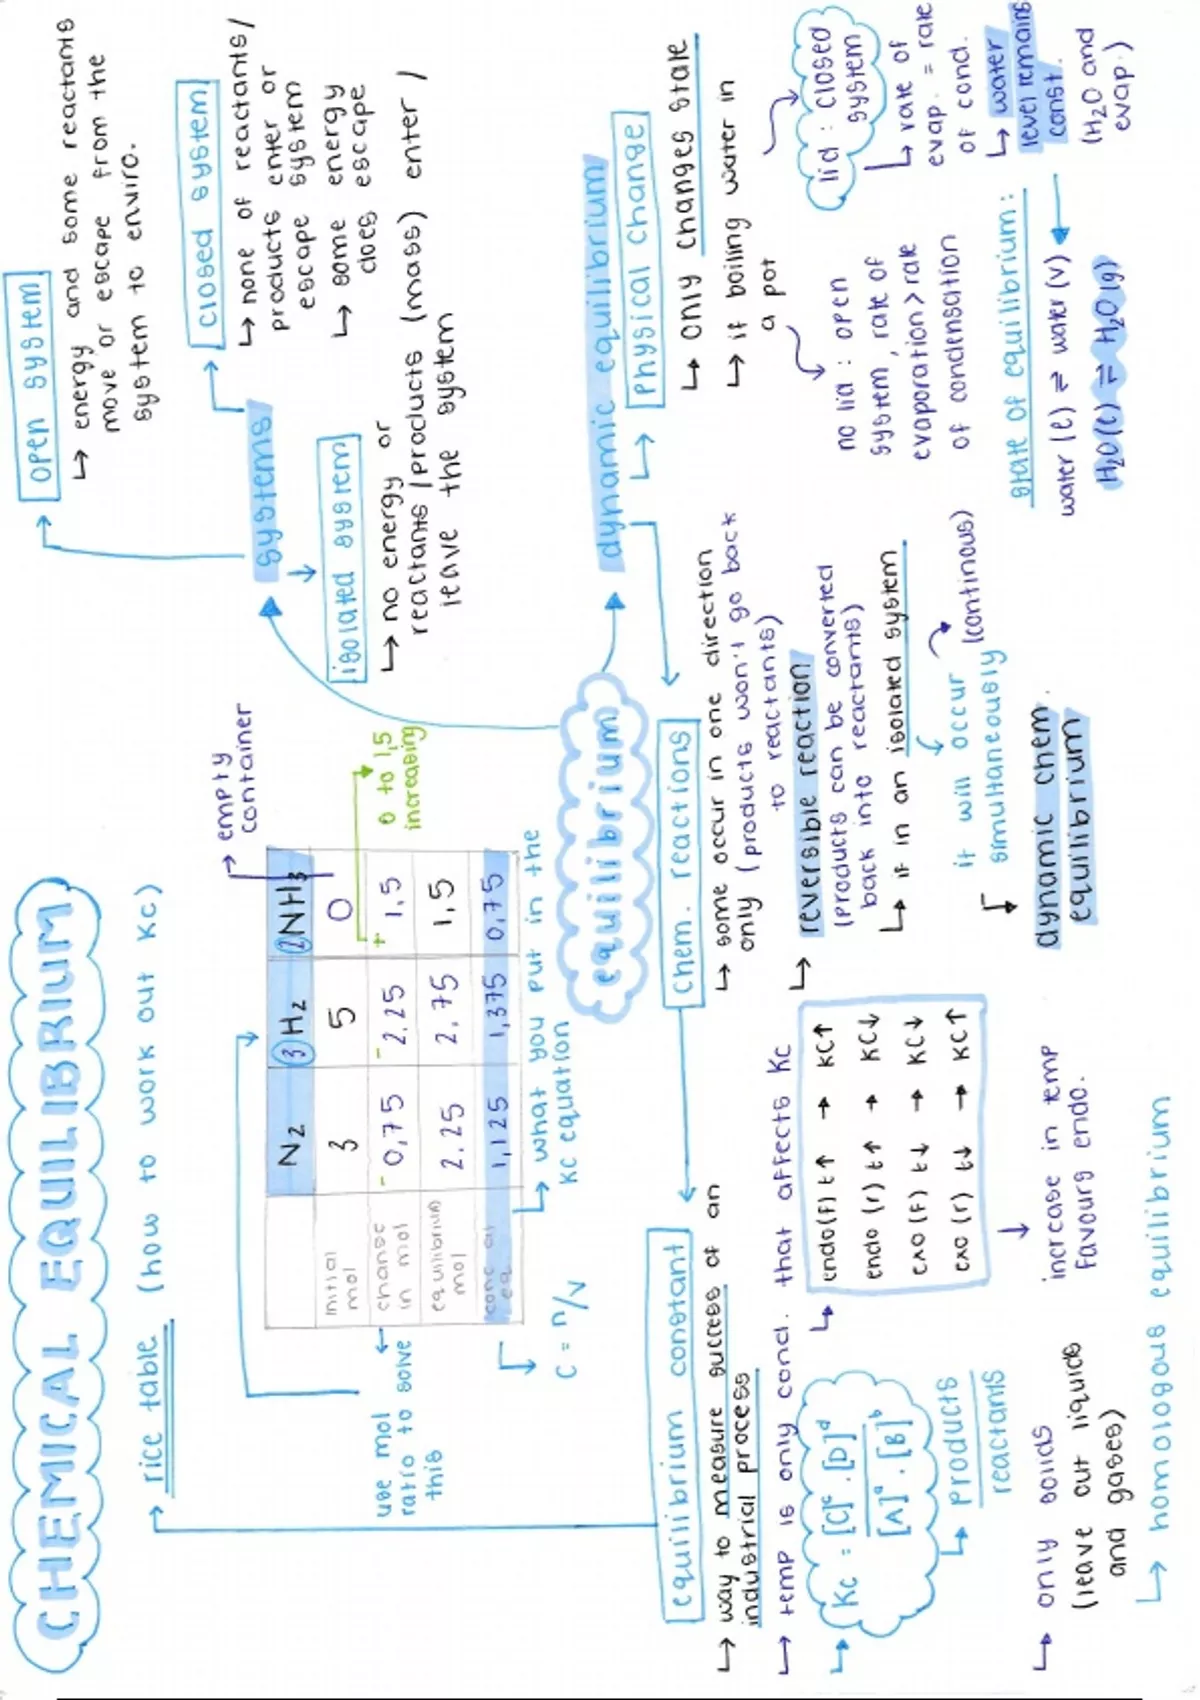 CHEMICAL EQUILIBRIUM
rice table (how to work out Kc)
empty
container
N2 3H2 2NH3
initial
mol
3 5 0
change
in mol
- 0,75 - 2,25 + 1,5
equilibrium
mol
2.25 2,75 1,5
conc at
eq
1,125 1,375 0,75
0 to 1,5
increasing
use mol
ratio to solve
this
C = n/V
what you put in the
Kc equation
equilibrium
systems
open system
↳ energy and some reactants
move or escape from the
system to enviro.
closed system
↳ none of reactants/
products enter or
escape system
↳ some energy
does escape
isolated system
↳ no energy or
reactants/products (mass) enter /
leave the system
dynamic equilibrium
physical change
↳ only changes state
↳ if boiling water in
a pot
no lid : open
system, rate of
evaporation > rate
of condensation
lid : closed
system
↳ rate of
evap. = rate
of cond.
↳ water
level remains
const.
(H2O and
evap.)
state of equilibrium :
water (l) ⇌ water (v)
H2O(l) ⇌ H2O(g)
chem. reactions
↳ some occur in one direction
only (products won't go back
to reactants)
↳ reversible reaction
(products can be converted
back into reactants)
↳ if in an isolated system.
it will occur
simultaneously (continous)
dynamic chem.
equilibrium
equilibrium constant
↳ way to measure success of an
industrial process
↳ temp is only cond. that affects Kc
↳ endo(f) t↑ → KC↑
endo (r) t↑ → KC↓
exo (f) t↓ → KC↓
exo (r) t↓ → KC↑
increase in temp
favours endo.
↳ Kc = [C]ᶜ . [D]ᵈ
[A]ᵃ . [B]ᵇ
↳ products
reactants
↳ only solids
(leave out liquids
and gases)
↳ homologous equilibrium